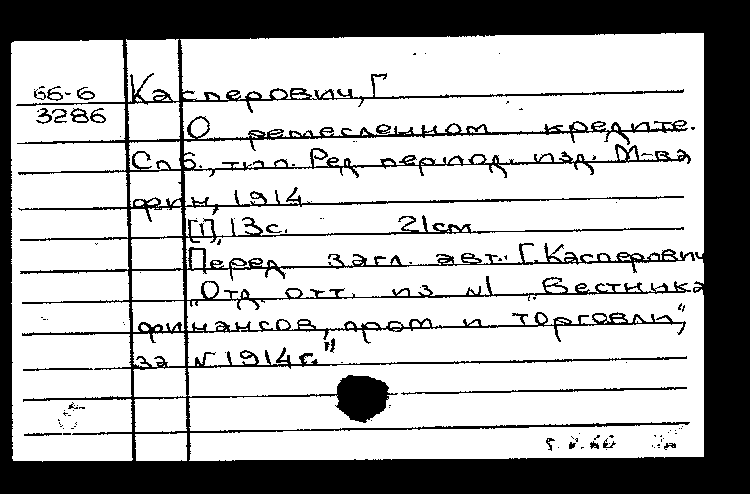 66-6
3286
Касперович, Г
О ремесленном кредите.
Спб., тип. Ред. период. изд. М-ва
фин, 1914
[1], 13с. 21см
Перед загл. авт.: Г. Касперович
"Отд. отт. из №1 "Вестника
финансов, пром. и торговли",
за 1914г."